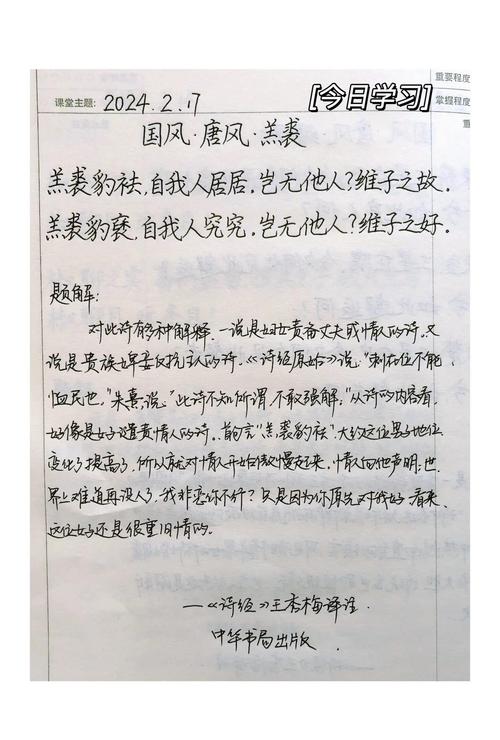 重要程度
课堂主题: 2024.2.17
[今日学习]
掌握程度
重
国风·唐风·羔裘
羔裘豹祛,自我人居居。岂无他人?维子之故。
羔裘豹褎,自我人究究。岂无他人?维子之好。
题解:
对此诗有多种解释。一说是妇女责备丈夫或情人的诗。又
说是贵族婢妾反抗主人的诗。《诗经原始》说:“刺在位不能
恤民也。”朱熹说:“此诗不知所谓,不敢强解。”从诗的内容看,
好像是女子谴责情人的诗。首言“羔裘豹祛”大约这位男子地位
变化了提高了,所以就对情人开始傲慢起来,情人向他声明:世
界上难道再没人了,我非恋你不什?只是因为你原先对我好。看来,
这位女子还是很重旧情的。
——《诗经》王秀梅译注.
中华书局出版.